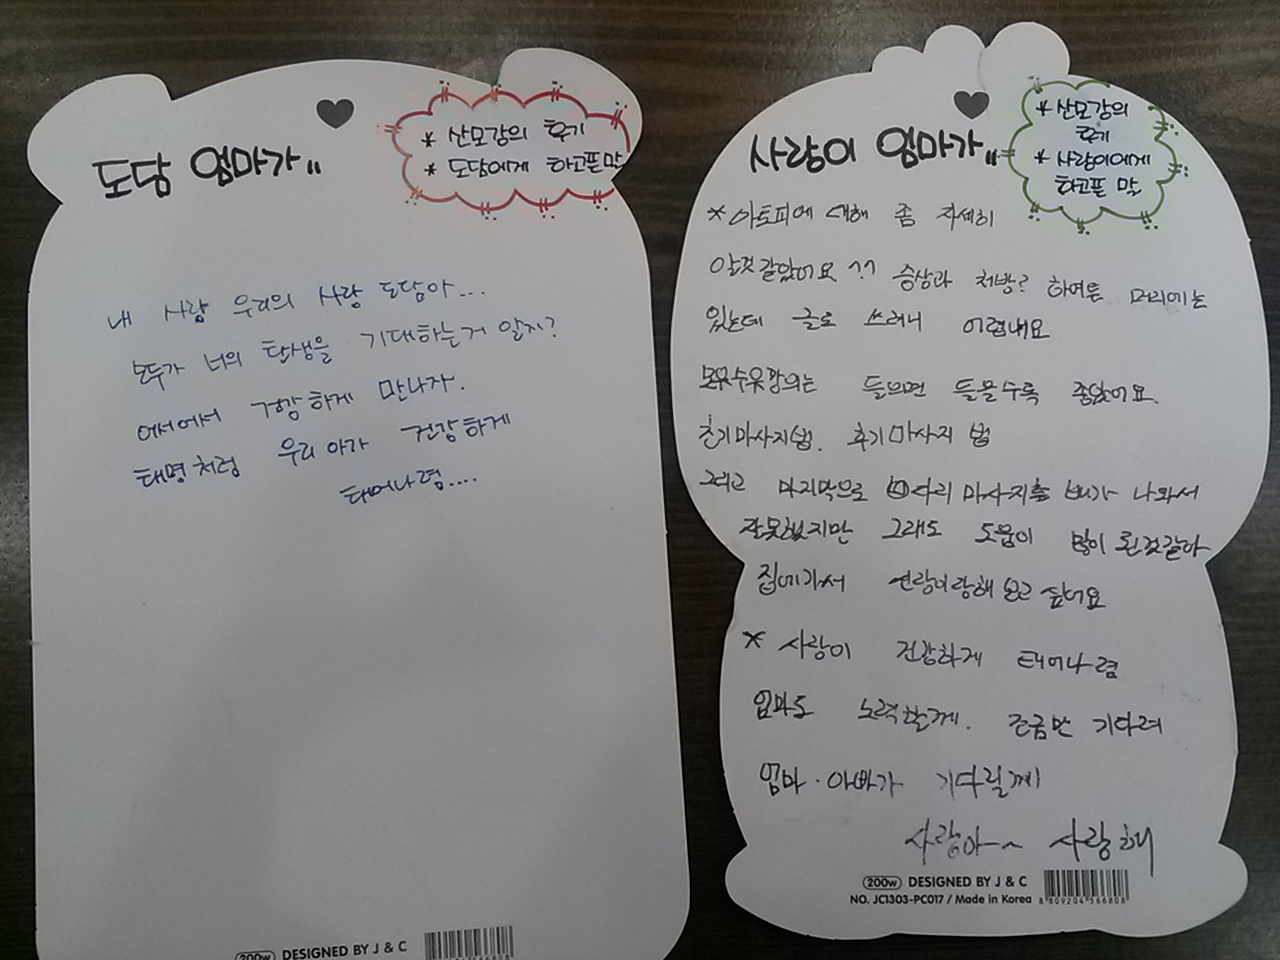 도담 엄마가..
* 산모강의 후기
* 도담에게 하고픈말
내 사랑 우리의 사랑 도담아...
모두가 너의 탄생을 기대하는거 알지?
어서어서 건강하게 만나자.
태명처럼 우리 아가 건강하게
태어나렴....
200w DESIGNED BY J & C
사랑이 엄마가..
* 산모강의
후기
* 사랑이에게
하고픈 말
*아토피에 대해 좀 자세히
안것같았어요 ^^ 증상과 처방? 하여튼 머리에는
있는데 글로 쓰려니 어렵내요
모유수유강의는 들으면 들을수록 좋았어요.
초기마사지법. 후기마사지 법
그리고 마지막으로 다리 마사지를 배가 나와서
잘못했지만 그래도 도움이 많이 된것같아
집에가서 신랑이랑해 보고 싶어요
* 사랑이 건강하게 태어나렴
엄마도 노력할께. 조금만 기다려
엄마·아빠가 기다릴께
사랑아~^ 사랑해
200w DESIGNED BY J & C
NO. JC1303-PC017 / Made in Korea
8 809204 566808